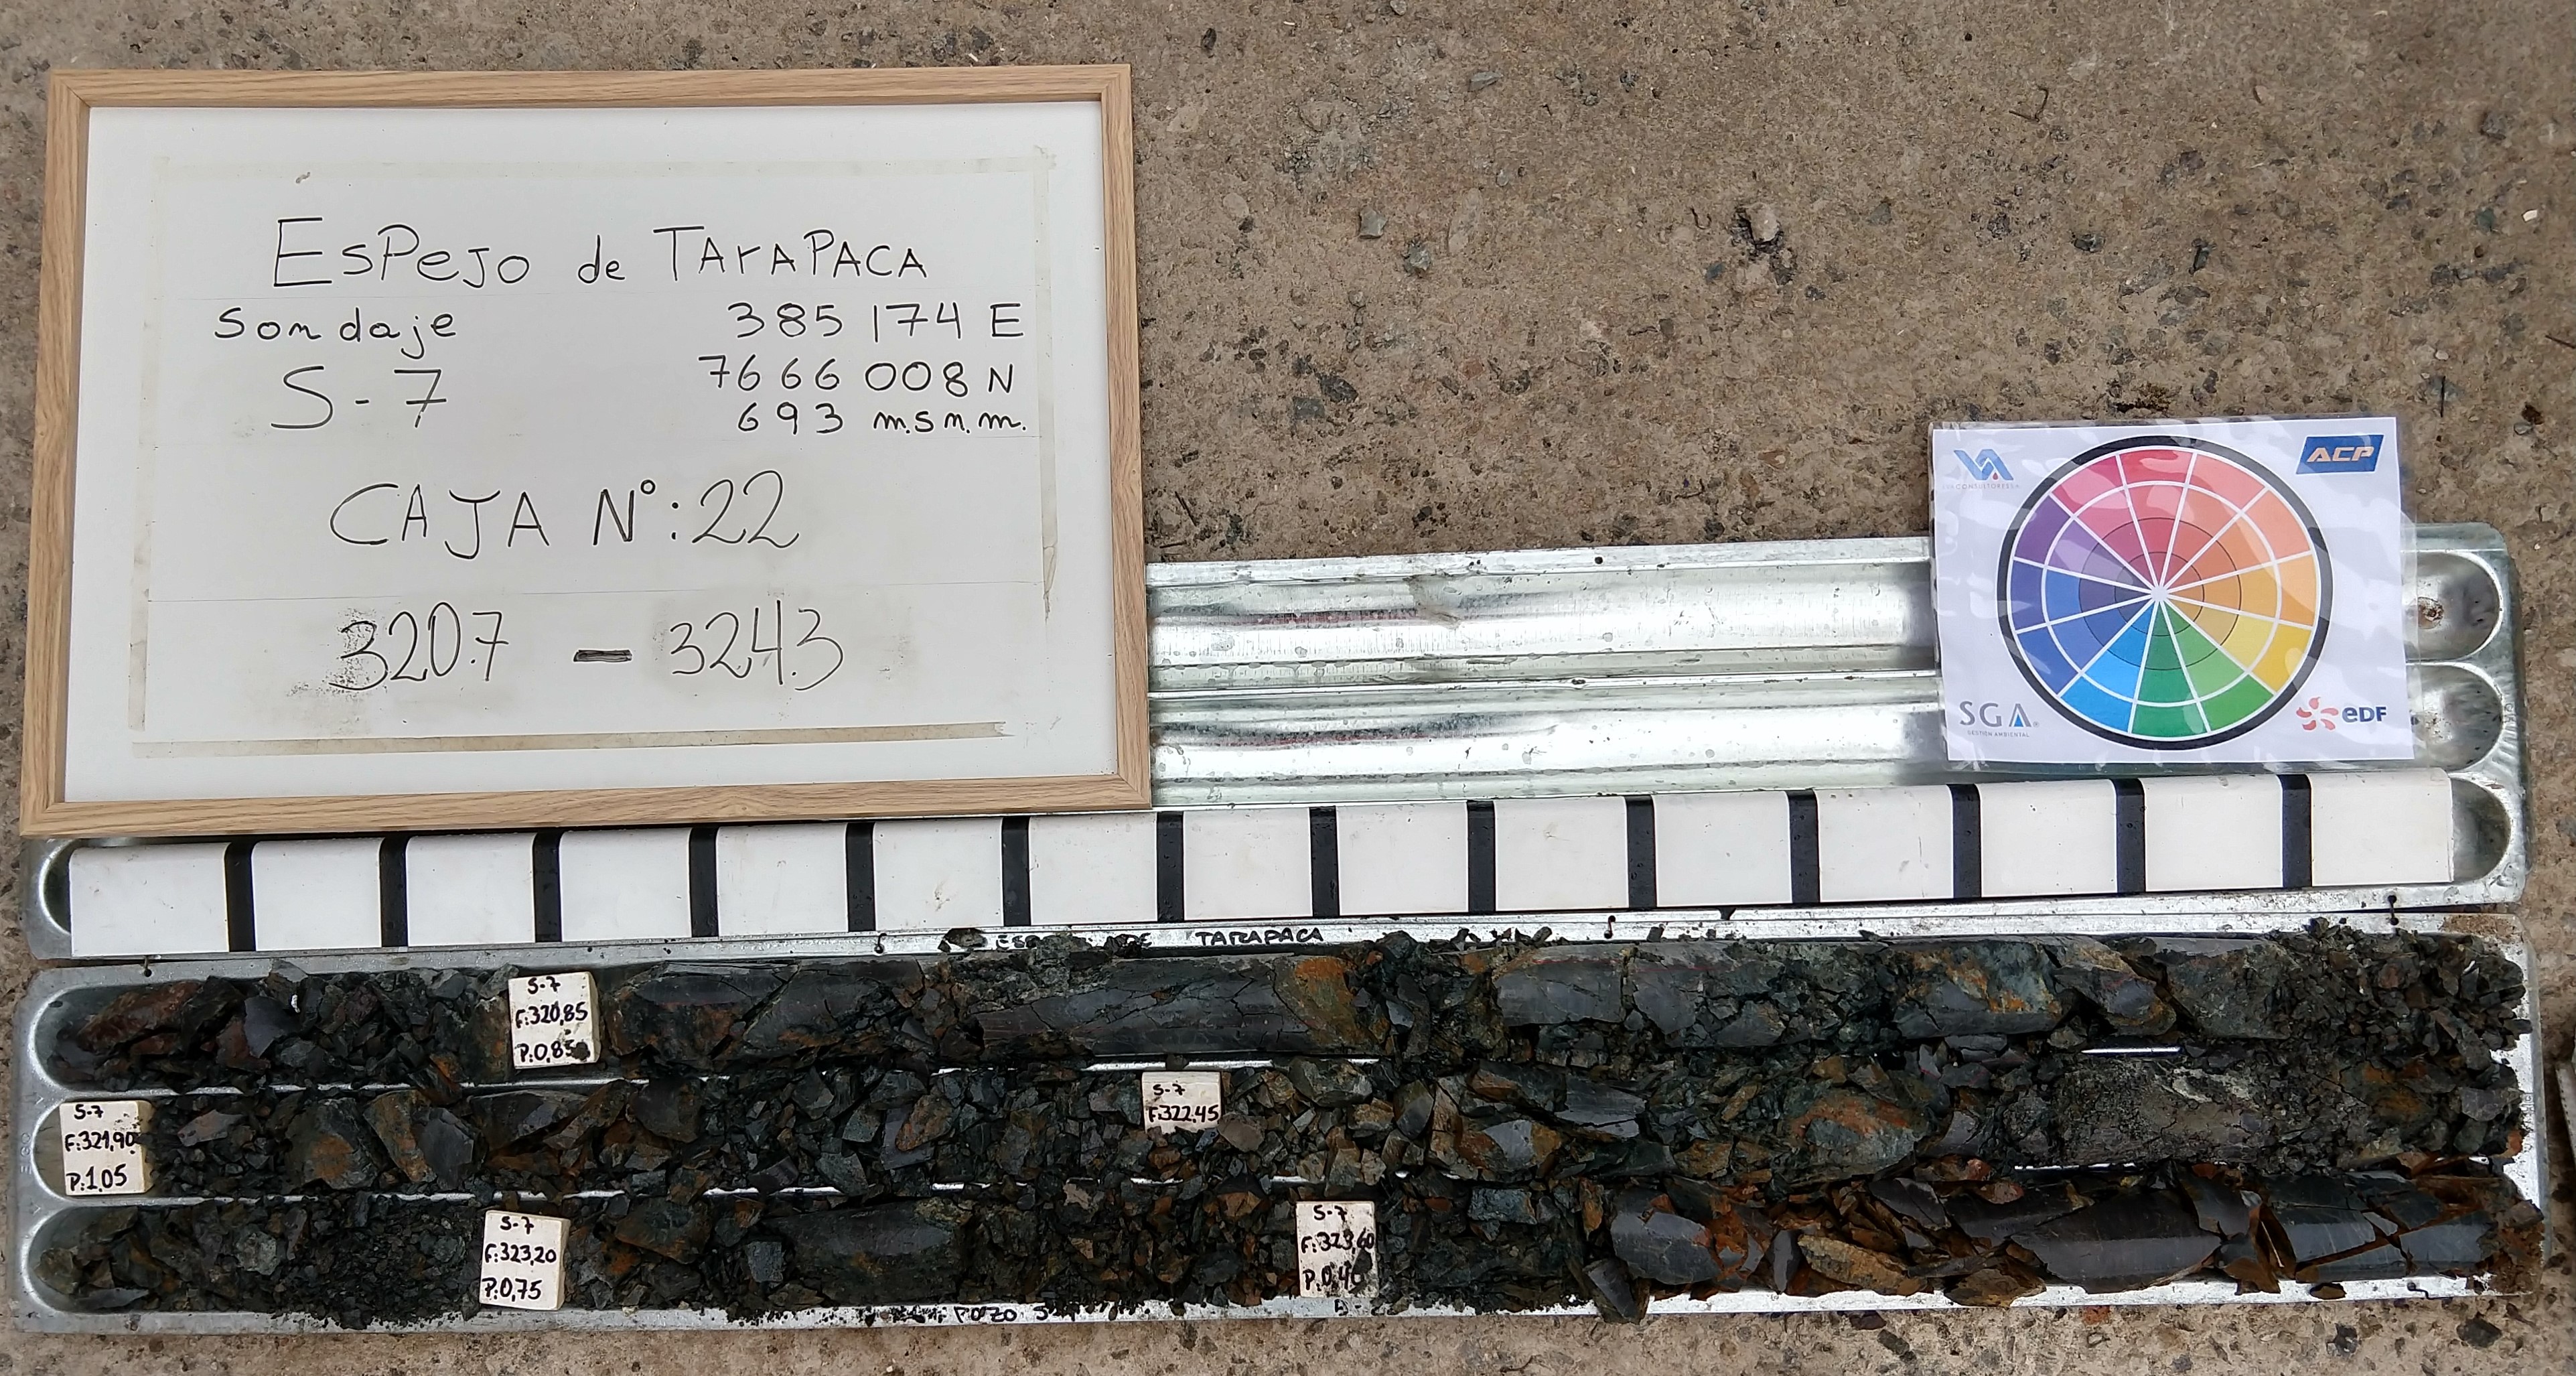 EsPeJo de TArAPACA
Sondaje 385174 E
S-7 7666008 N
693 m.s.n.m.
CAJA N°:22
320.7 – 324.3
ACP
CONSULTORES
SGA
GESTION AMBIENTAL
eDF
TARAPACA
S-7
F:320,85
P:0,85
S-7
F:321,90
P:1,05
S-7
F:322,45
S-7
F:323,20
P:0,75
S-7
F:323,60
P:0,40
POZO